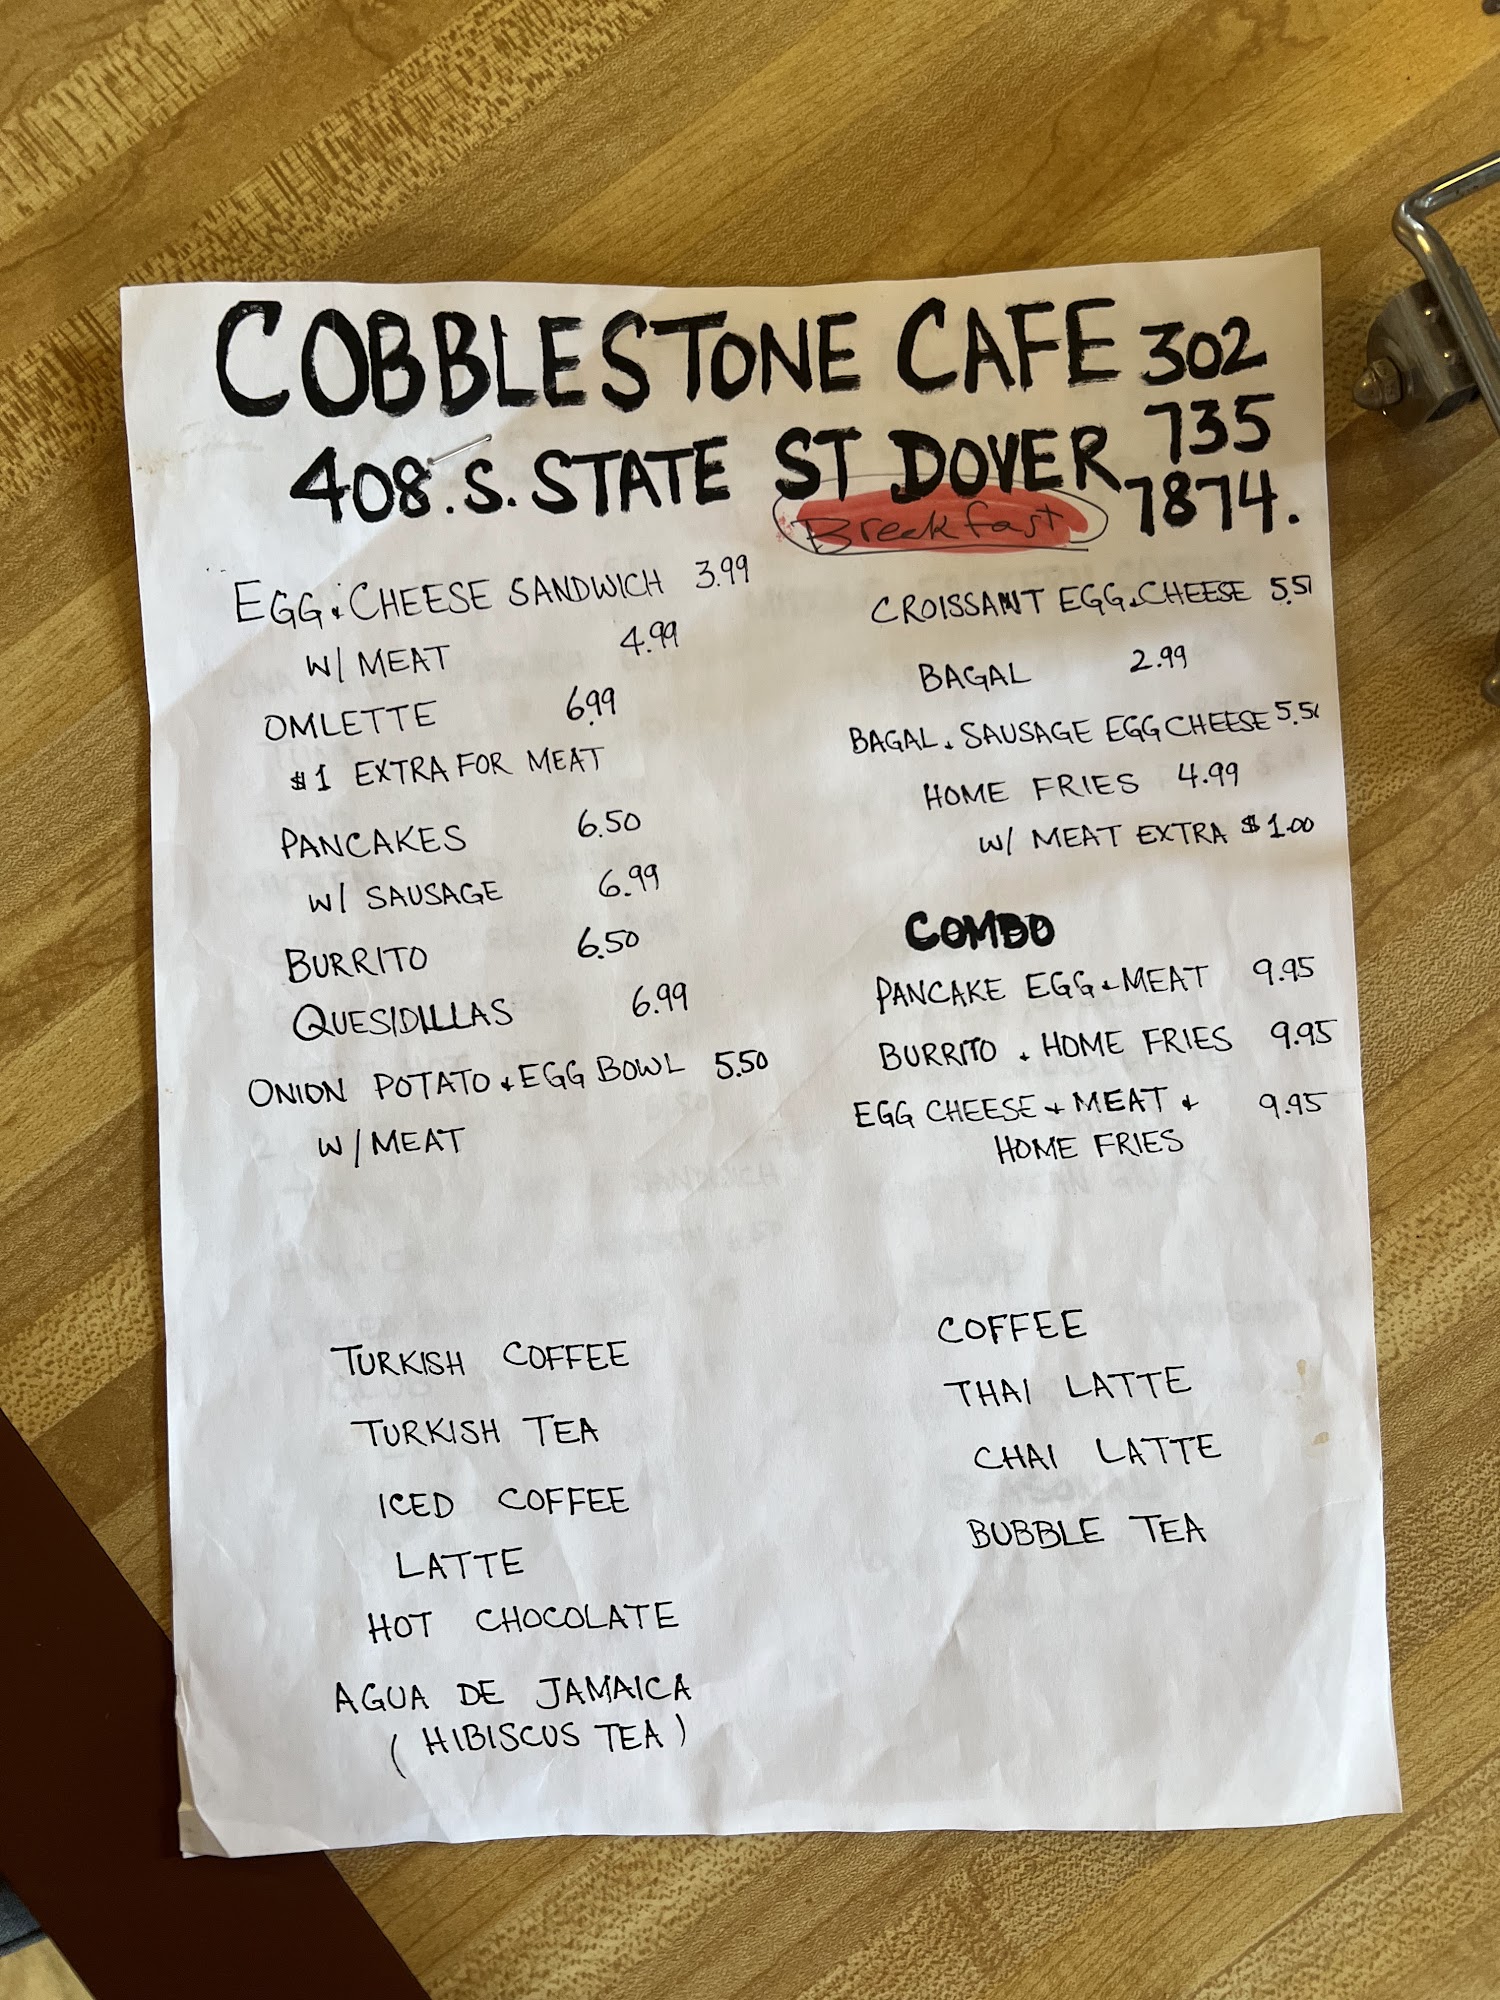 COBBLESTONE CAFE 302
408. S. STATE ST DOVER 735
7874.
Breakfast
EGG & CHEESE SANDWICH 3.99
W/ MEAT 4.99
OMLETTE 6.99
$1 EXTRA FOR MEAT
PANCAKES 6.50
W/ SAUSAGE 6.99
BURRITO 6.50
QUESIDILLAS 6.99
ONION POTATO & EGG BOWL 5.50
W/ MEAT
CROISSANT EGG & CHEESE
BAGAL 2.99
BAGAL & SAUSAGE EGG CHEESE
HOME FRIES 4.99
W/ MEAT EXTRA $1.00
COMBO
PANCAKE EGG & MEAT 9.95
BURRITO & HOME FRIES 9.95
EGG CHEESE & MEAT & 9.95
HOME FRIES
TURKISH COFFEE
TURKISH TEA
ICED COFFEE
LATTE
HOT CHOCOLATE
AGUA DE JAMAICA
(HIBISCUS TEA)
COFFEE
THAI LATTE
CHAI LATTE
BUBBLE TEA